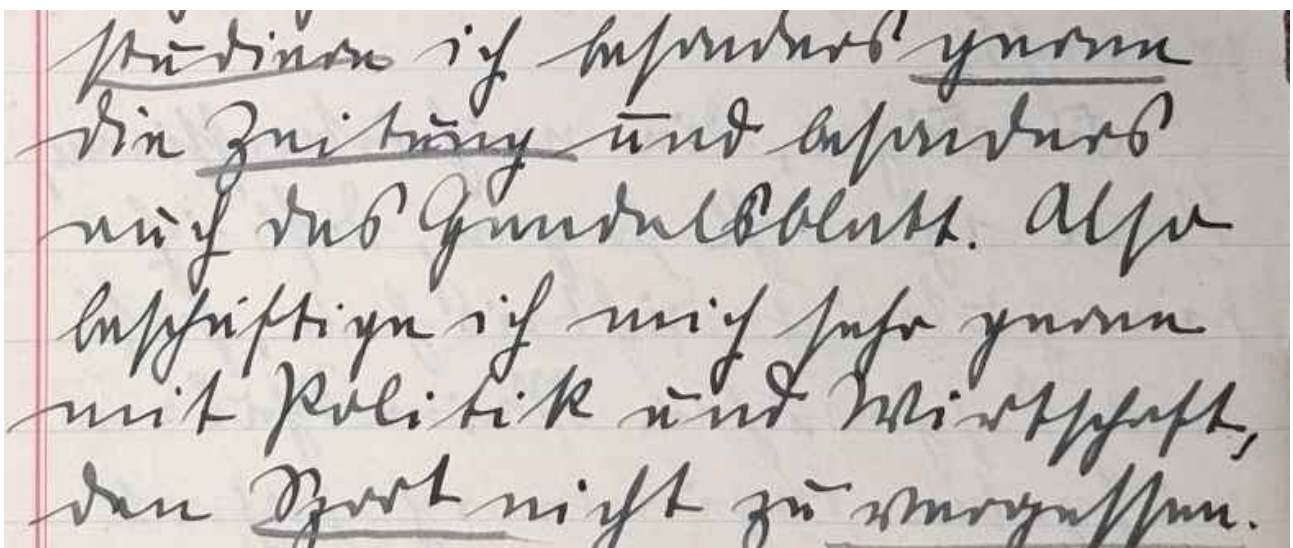 studiere ich besonders gerne
die Zeitung und besonders
auch das Handelsblatt. Also
beschäftige ich mich sehr gerne
mit Politik und Wirtschaft,
den Sport nicht zu vergessen.